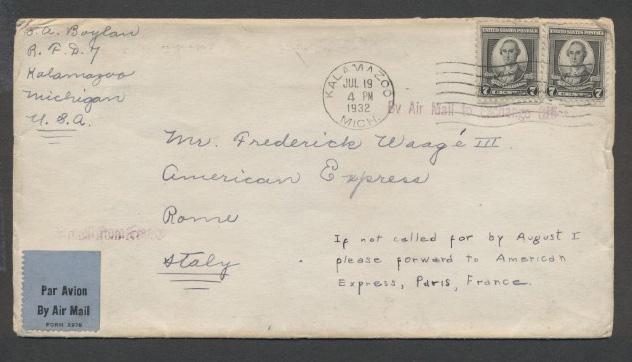 J. A. Boylan
R. F. D. 7
Kalamazoo
Michigan
U. S. A.
UNITED STATES POSTAGE
7 7
UNITED STATES POSTAGE
7 7
KALAMAZOO
JUL 19
4 PM
1932
MICH.
By Air Mail to Exchange Office
Mr. Frederick Waagé III.
American Express
Rome
Italy
If not called for by August I
please forward to American
Express, Paris, France.
Par Avion
By Air Mail
FORM 2978